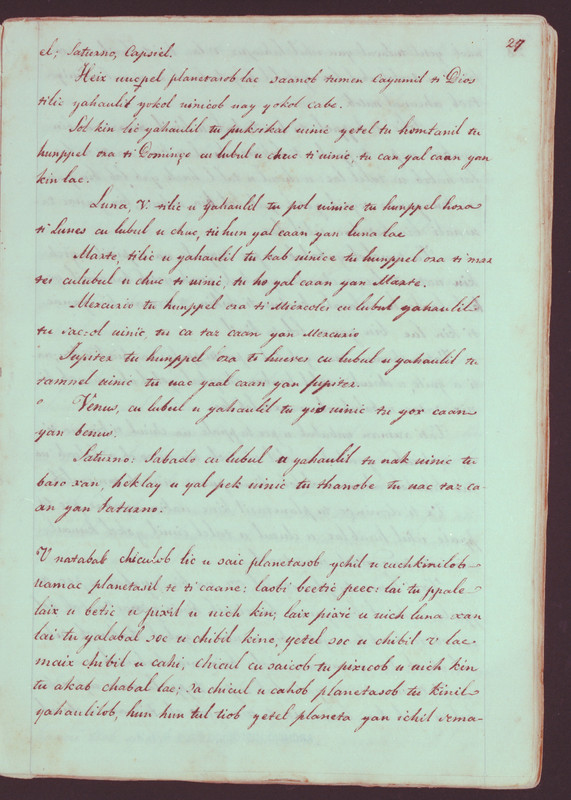 27
el; Saturno, Capsiel.
Heix uucpel planetasob lae saanob tumen Cayumil ti Dios
tilic yahaulil yokol uinicob uay yokol cabe.
Sol kin lic yahaulil tu puksikal uinic yetel tu homtanil tu
hunppel ora ti Domingo cu lubul u chuc ti uinic, tu can yal caan yan
kin lae.
Luna, V. tilic u yahaulil tu pol uinice tu hunppel hora
ti Lunes cu lubul u chuc, ti hun yal caan yan luna lae
Marte, tilic u yahaulil tu kab uinice tu hunppel ora ti mar
tes culubul u chuc ti uinic, tu ho yal caan yan Marte.
Mercurio tu hunppel ora ti Miercoles cu lubul yahaulil
tu sac-ol uinic, tu ca taz caan yan Mercurio
Jupiter tu hunppel ora ti hueves cu lubul u yahaulil tu
tamnel uinic tu uac yaal caan yan Jupiter.
Venus, cu lubul u yahaulil tu uinic tu yox caan
yan benus.
Saturno: Sabado cu lubul u yahaulil ta nak uinic tu
baso xan, heklay u yal pek uinic tu thanobe tu uac taz ca-
an yan Saturno.
V natabab chiculob lic u saic planetasob ychil u cuchkinilob
uamac planetasil ti caane: laobi beetic peec: lai tu ppale
laix u betic u pixil u uich kin; laix pixic u uich luna xan
lai tu yalabal soc u chibil kine, yetel soc u chibil v lae
maix chibil u cahi, chicul cu saicob tu pixicob u uich kin
tu akab chabal lae; sa chicul u cahob planetasob tu kinil
yahaulilob, hun hun tul tiob yetel planeta yan ichil uma-